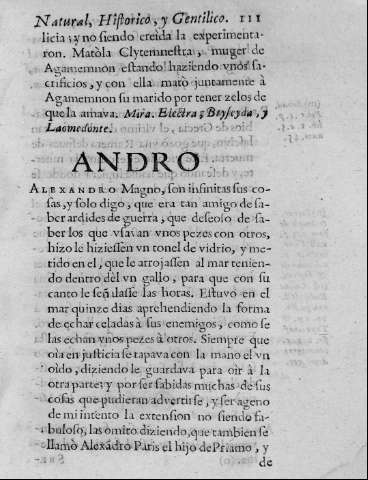 Natural, Historico, y Gentilico. 111
licia: y no siendo creida la experimenta-
ron. Matòla Clytemnestra, muger de
Agamemnon estando haziendo vnos sa-
crificios, y con ella matò juntamente à
Agamemnon su marido por tener zelos de
que la amava. Mira. Electra, Bryseyda, y
Laomedonte.
ANDRO
ALEXANDRO Magno, son infinitas sus co-
sas, y solo digo, que era tan amigo de sa-
ber ardides de guerra, que deseoso de sa-
ber los que vsavan vnos pezes con otros,
hizo le hiziessen vn tonel de vidrio, y me-
tido en el, que le arrojassen al mar tenien-
do dentro dèl vn gallo, para que con su
canto le señalasse las horas. Estuvo en el
mar quinze dias aprehendiendo la forma
de echar celadas à sus enemigos, como se
las echan vnos pezes à otros. Siempre que
oìa en justicia se tapava con la mano el vn
oìdo, diziendo le guardava para oir à la
otra parte: y por ser sabidas muchas de sus
cosas que pudieran advertirse, y ser ageno
de mi intento la extension no siendo fa-
buloso, las omito diziendo, que tambien se
llamò Alexādro Paris el hijo de Priamo, y
de